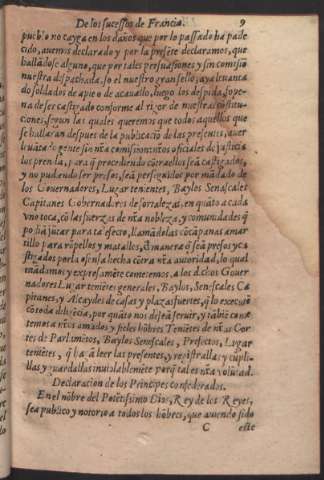 De los sucessos de Francia. 9
pueblo no cayga en los daños que por lo passado ha pade
cido, auemos declarado y por la presẽte declaramos, que
hallãdose alguno, que por tales persuasiones y sin comisiõ
nuestra despachada, so el nuestro gran sello, aya leuanta
do soldados de apie o de acauallo, luego los despida, so pe-
na de ser castigado conforme al rigor de nuestras cõstitu-
ciones, segun las quales queremos que todos aquellos que
se hallaran despues de la publicaciõ de las presentes, auer
leuãtado gente sin nr̃a comissiõ, nr̃os oficiales de justicia
los prendã, para q̃ procediendo cõtra ellos seã castigados,
y no pudiendo ser presos, seã perseguidos por mãdado de
los Gouernadores, Lugar tenientes, Baylos Senescales
Capitanes Gobernadores de fortalezas, en quãto a cada
vno toca, cõ las fuerzas de nr̃a nobleza, y comunidades q̃
po hã jutar para ta efecto, llamãdo las cãpanas a mar
tillo para rõpellos y matallos, d̃ manera q̃ seã presos y ca
stigados por la ofensa hecha cõtra nr̃a autoridad, lo qual
mãdamos y expresamẽte cometemos, a los dichos Gouer
nadores Lugar tenientes generales, Baylos, Senescales Ca
pitanes, y Alcaydes de casas y plazas fuertes, q̃ lo executẽ
cõ toda diligẽcia, por quãto nos desea seruir, y tãbiẽ come
temos a nr̃os amados y fieles hõbres Teniẽtes de nr̃as Cor
tes de Parlamẽtos, Baylos Senescales, Prefectos, Lugar
teniẽtes, q̃ hagã leer las presentes, y registrallas y cupli-
llas y guardallas inuiolablemẽte porq̃ tal es nr̃a volũtad.
Declaracion de los Principes confederados.
En el nõbre del Potẽtissimo Dios, Rey de los Reyes,
sea publico y notorio a todos los hõbres, que auiendo sido
C este